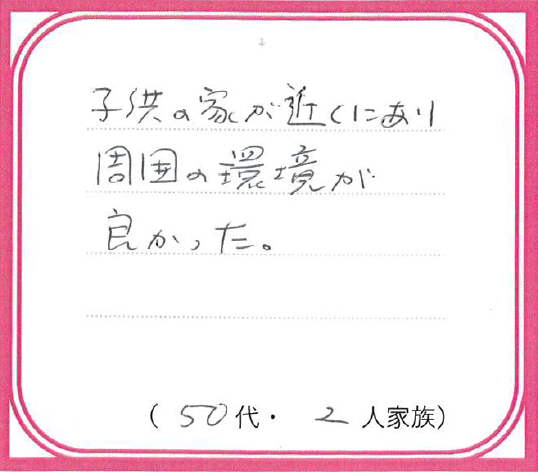 子供の家が近くにあり
周囲の環境が
良かった。
(50代・2人家族)